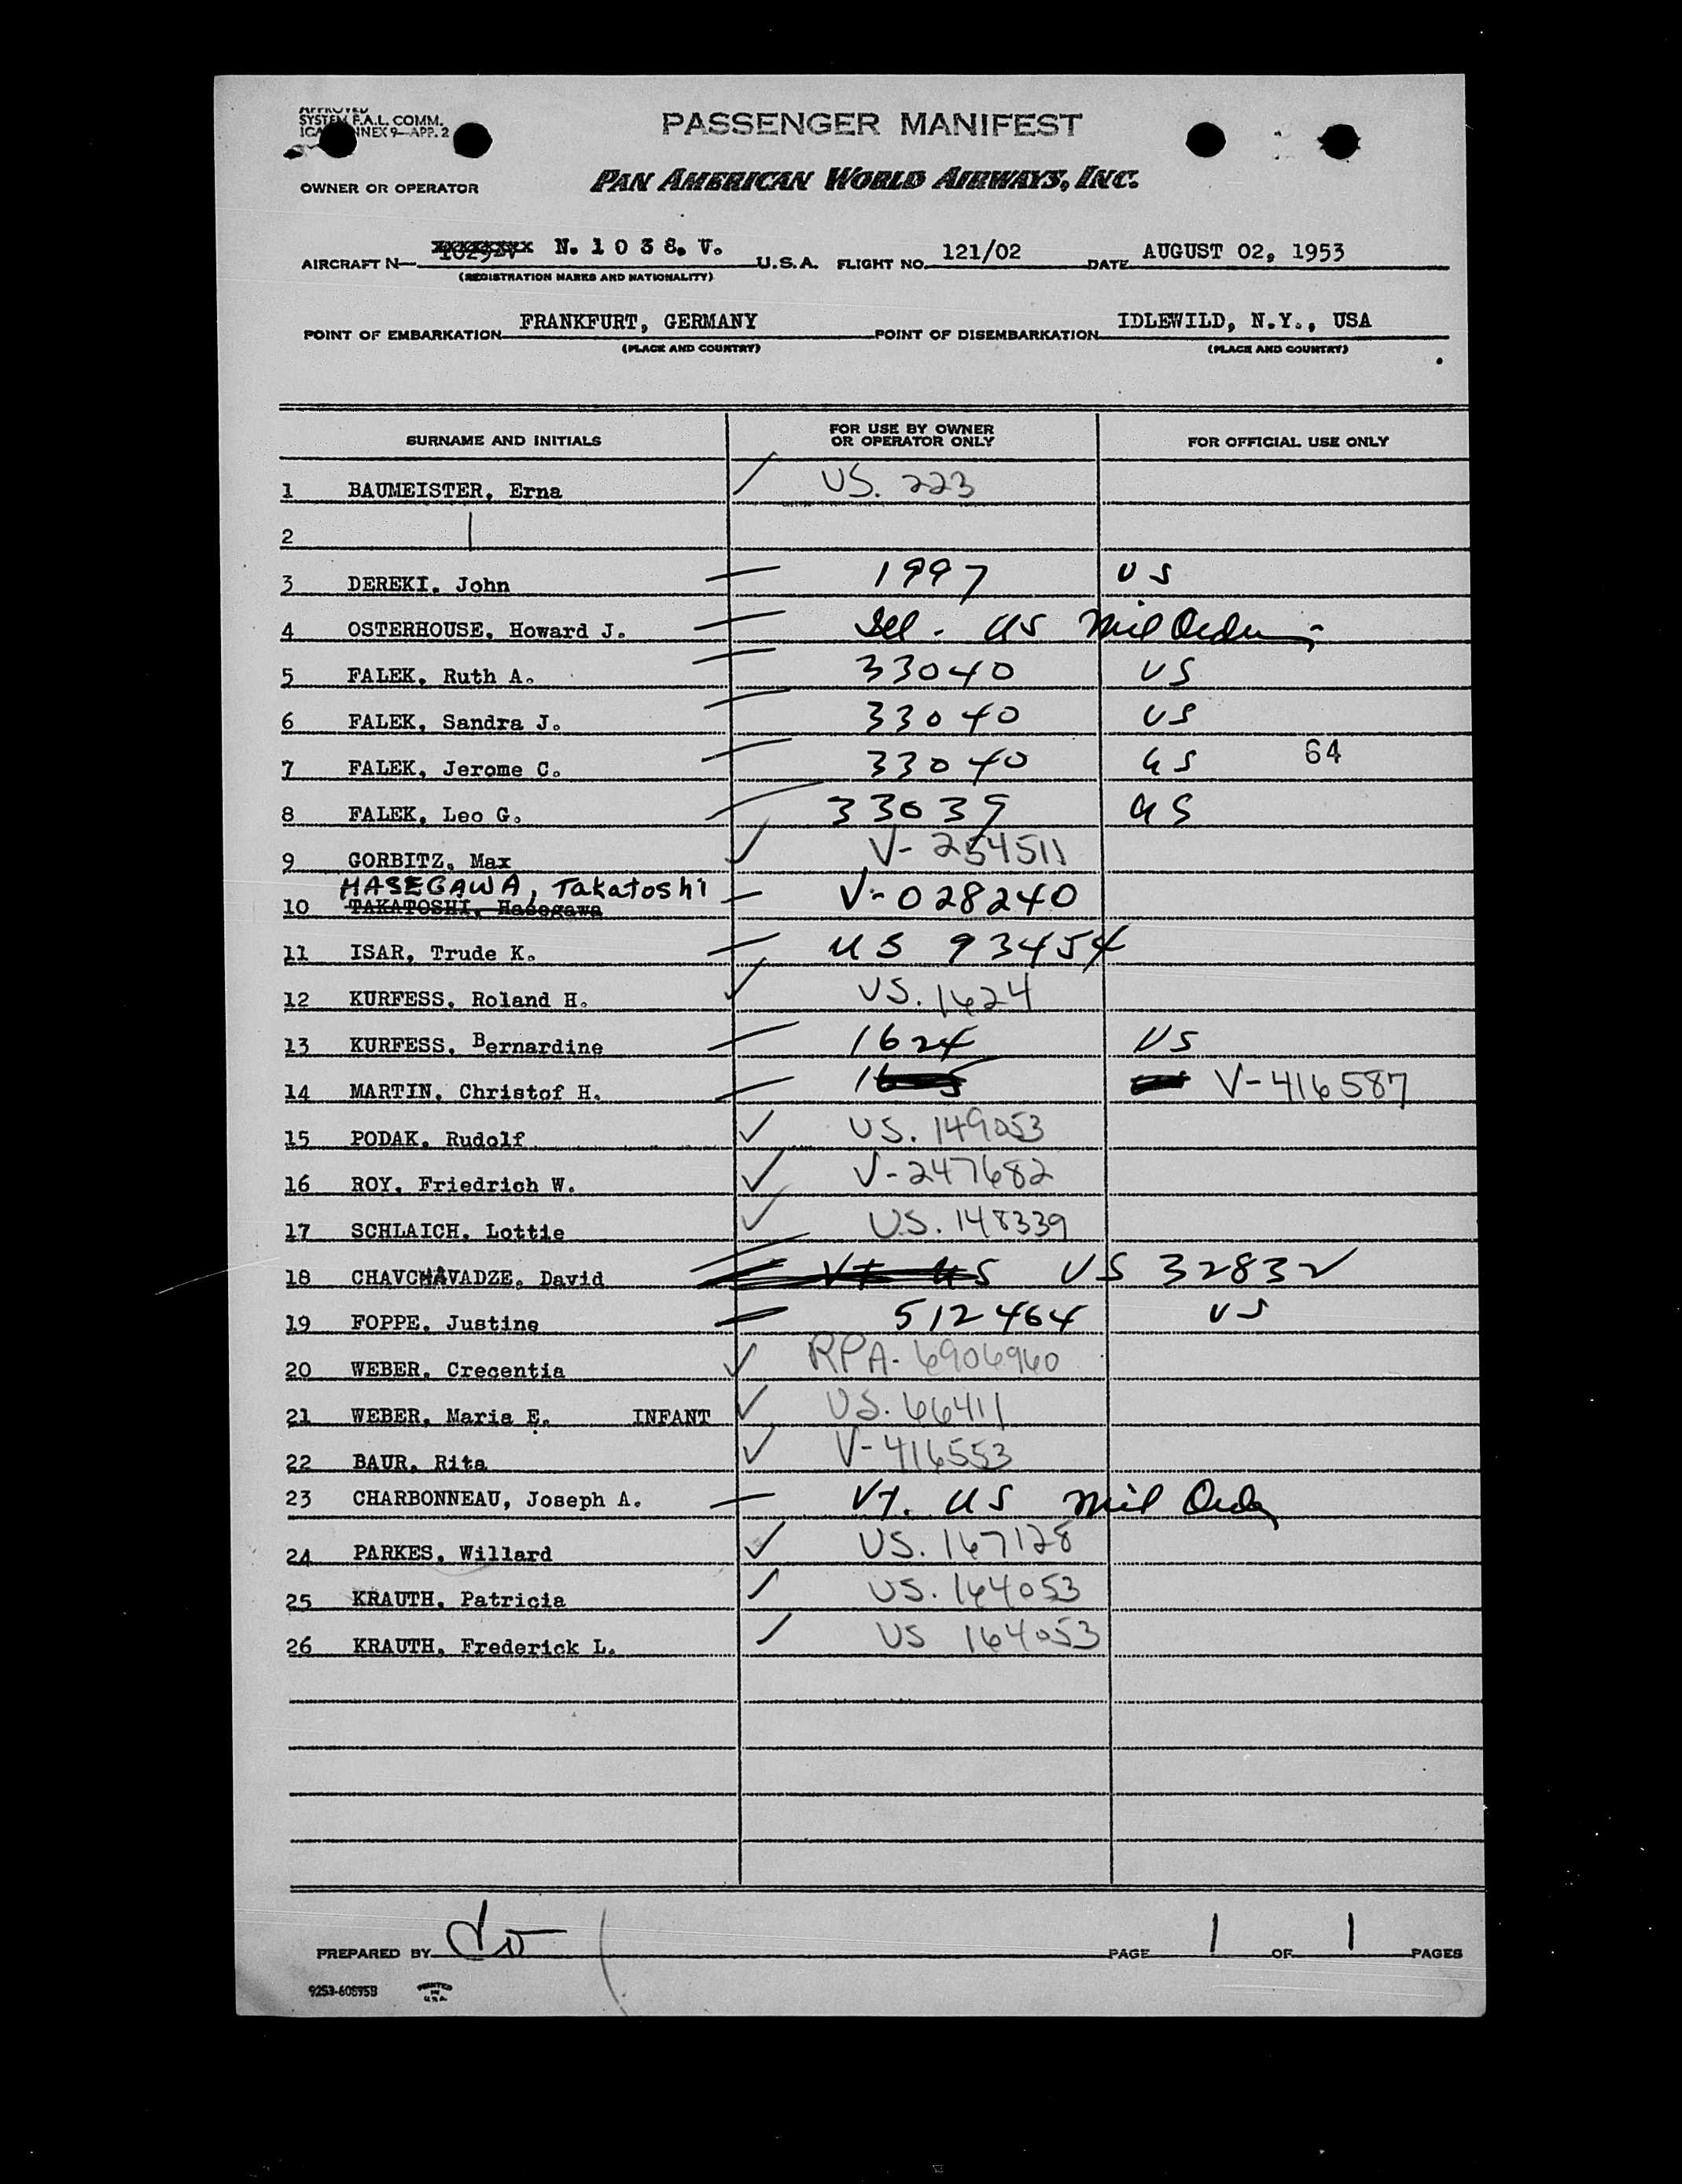 APPROVED
SYSTEM F.A.L. COMM.
ICA NNEX 9—APP. 2
PASSENGER MANIFEST
OWNER OR OPERATOR PAN AMERICAN WORLD AIRWAYS, INC.
AIRCRAFT N— N. 1 0 3 8. V. U.S.A. FLIGHT NO. 121/02 DATE AUGUST 02, 1953
(REGISTRATION MARKS AND NATIONALITY)
POINT OF EMBARKATION FRANKFURT, GERMANY POINT OF DISEMBARKATION IDLEWILD, N.Y., USA
(PLACE AND COUNTRY) (PLACE AND COUNTRY)
SURNAME AND INITIALS FOR USE BY OWNER OR OPERATOR ONLY FOR OFFICIAL USE ONLY
1 BAUMEISTER, Erna US. 223
2
3 DEREKI, John 1997 US
4 OSTERHOUSE, Howard J. US Mil Orders
5 FALEK, Ruth A. 33040 US
6 FALEK, Sandra J. 33040 US
7 FALEK, Jerome C. 33040 US 64
8 FALEK, Leo G. 33039 US
9 GORBITZ, Max V-254511
HASEGAWA, Takatoshi
10 TAKATOSHI, Hasegawa V-028240
11 ISAR, Trude K. US 93454
12 KURFESS, Roland H. US. 1624
13 KURFESS, Bernardine 1624 US
14 MARTIN, Christof H. V-416587
15 PODAK, Rudolf US. 149053
16 ROY, Friedrich W. V-247682
17 SCHLAICH, Lottie US. 148339
18 CHAVCHAVADZE, David US 32832
19 FOPPE, Justine 512464 US
20 WEBER, Crecentia RPA-6906960
21 WEBER, Maria E. INFANT US. 66411
22 BAUR, Rita V-416553
23 CHARBONNEAU, Joseph A. US Mil Order
24 PARKES, Willard US. 167128
25 KRAUTH, Patricia US. 164053
26 KRAUTH, Frederick L. US 164053
PREPARED BY PAGE 1 OF 1 PAGES
9253-60895B PRINTED IN U.S.A.